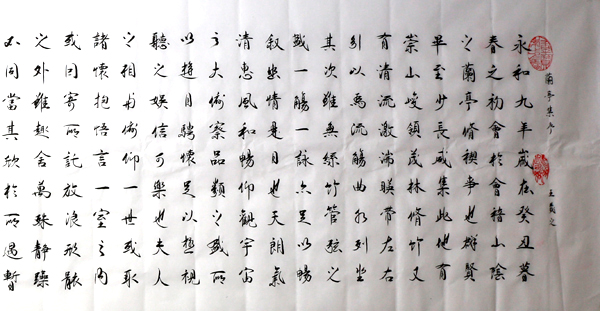 蘭亭集序
王羲之
永和九年歲在癸丑暮
春之初會於會稽山陰
之蘭亭脩禊事也群賢
畢至少長咸集此地有
崇山峻領茂林脩竹又
有清流激湍暎帶左右
引以為流觴曲水列坐
其次雖無絲竹管弦之
盛一觴一詠亦足以暢
叙幽情是日也天朗氣
清惠風和暢仰觀宇宙
之大俯察品類之盛所
以遊目騁懷足以極視
聽之娛信可樂也夫人
之相與俯仰一世或取
諸懷抱悟言一室之內
或因寄所託放浪形骸
之外雖趣舍萬殊靜躁
不同當其欣於所遇暫